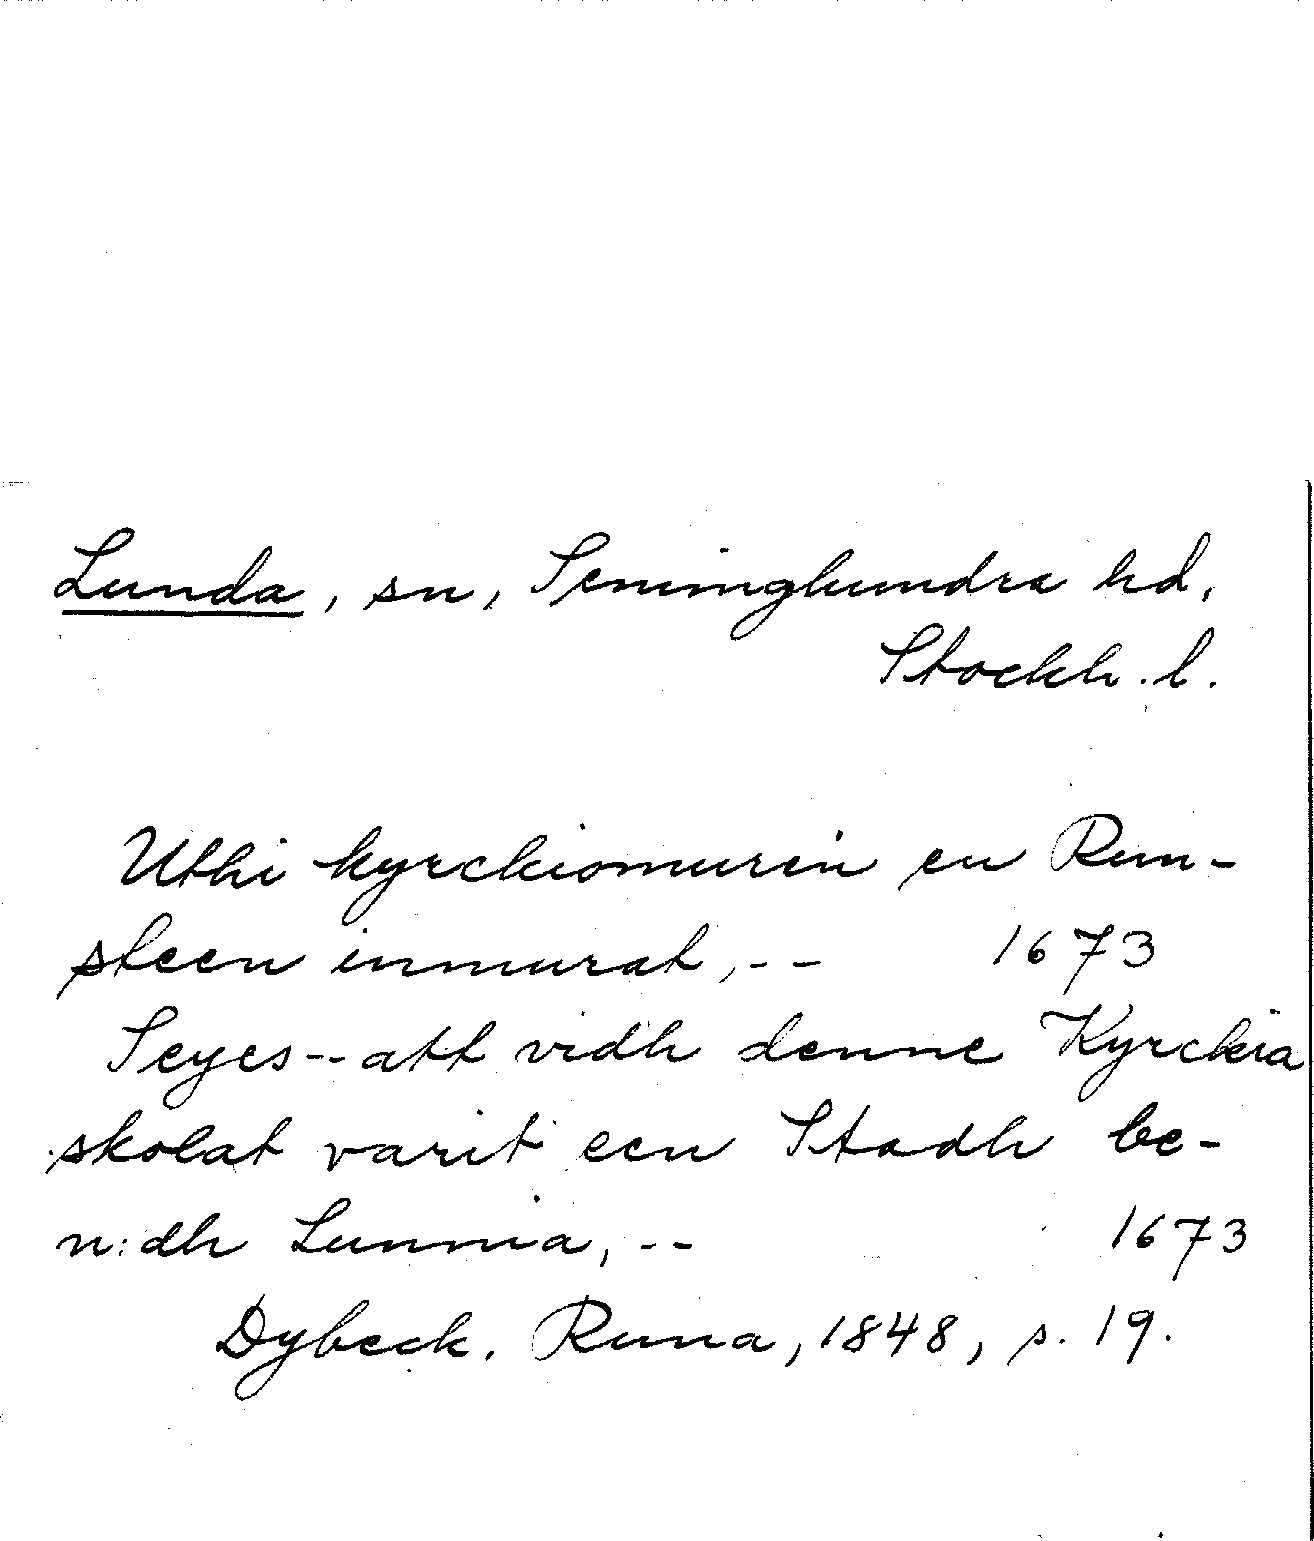 Lunda, sn, Seminghundra hd,
Stockh. l.
Uthi kyrckiomuren en Run-
steen inmurat, -- 1673
Seyes -- att vidh denne Kyrckia
skolat varit een Stadh be-
n:dh Lunnia, -- 1673
Dybeck. Runa, 1848, s. 19.